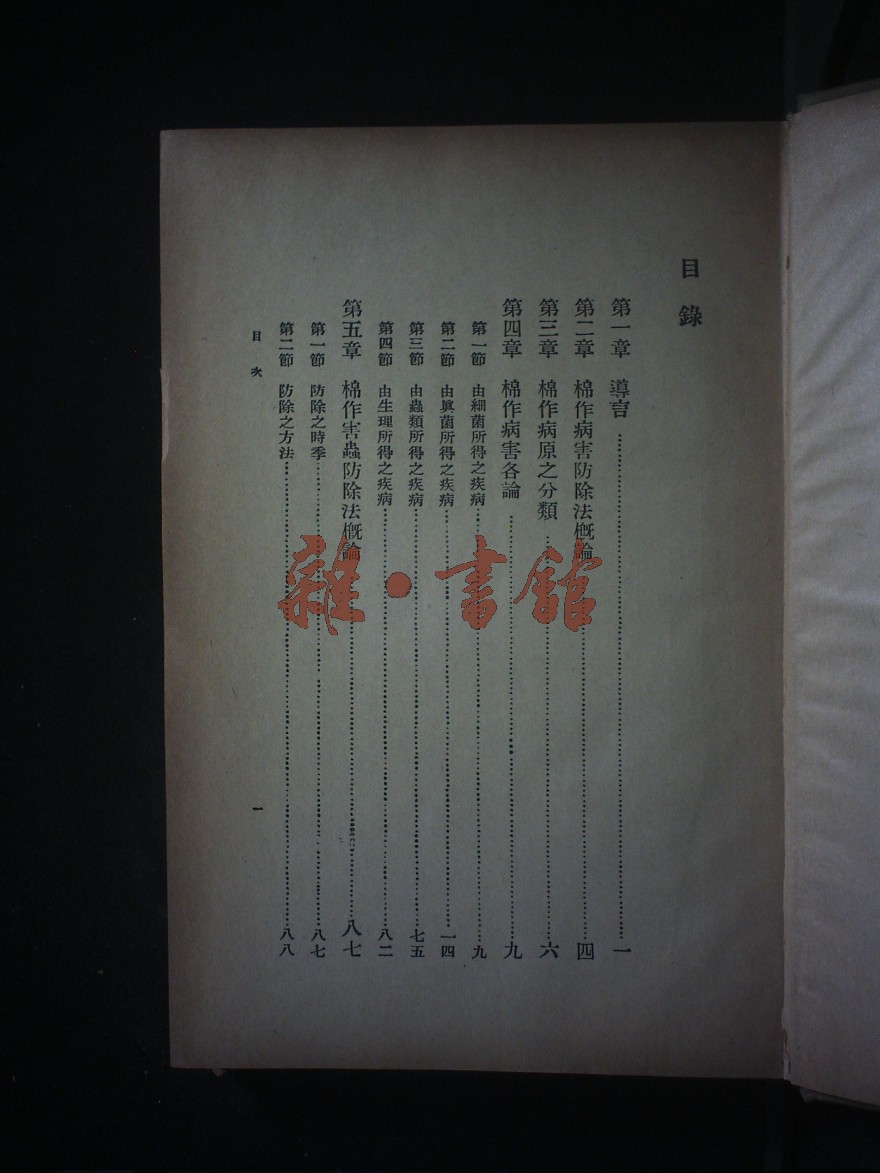 目錄
第一章 導言……一
第二章 棉作病害防除法概論……四
第三章 棉作病原之分類……六
第四章 棉作病害各論……九
第一節 由細菌所得之疾病……九
第二節 由眞菌所得之疾病……一四
第三節 由蟲類所得之疾病……七五
第四節 由生理所得之疾病……八二
第五章 棉作害蟲防除法概論……八七
第一節 防除之時季……八七
第二節 防除之方法……八八
目次 一
雜·書館